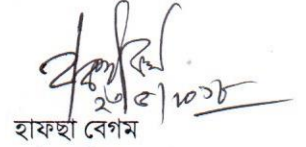 ২৩/৫/২০১৮
হাফছা বেগম